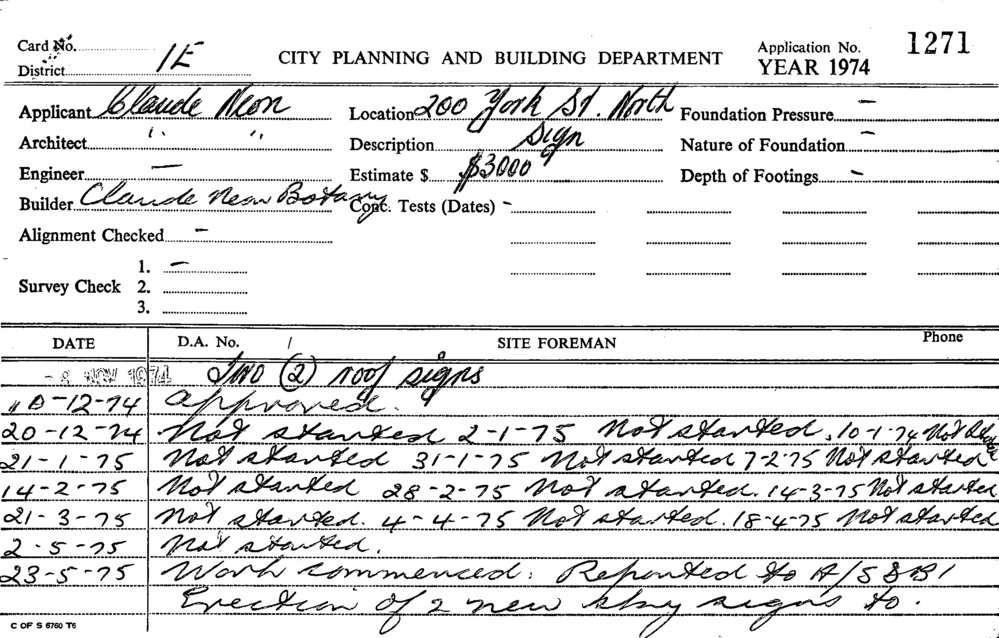 Card No. 1E CITY PLANNING AND BUILDING DEPARTMENT Application No. 1271
District YEAR 1974
Applicant Claude Neon Location 200 York St. North Foundation Pressure –
Architect " " Description Sign Nature of Foundation –
Engineer – Estimate $ $3000 Depth of Footings –
Builder Claude Neon Botany Conc. Tests (Dates) –
Alignment Checked –
1. –
Survey Check 2.
3.
DATE D.A. No. / SITE FOREMAN Phone
- 8 NOV 1974 Two (2) roof signs
10-12-74 Approved.
20-12-74 Not started 2-1-75 Not started. 10-1-74 Not
21-1-75 Not started 31-1-75 Not started 7-2-75 Not started
14-2-75 Not started 28-2-75 Not started. 14-3-75 Not started
21-3-75 Not started. 4-4-75 Not started. 18-4-75 Not started
2-5-75 Not started.
23-5-75 Work commenced: Reported to A/SBI
Erection of 2 new sky signs to.
C OF S 6760 T6